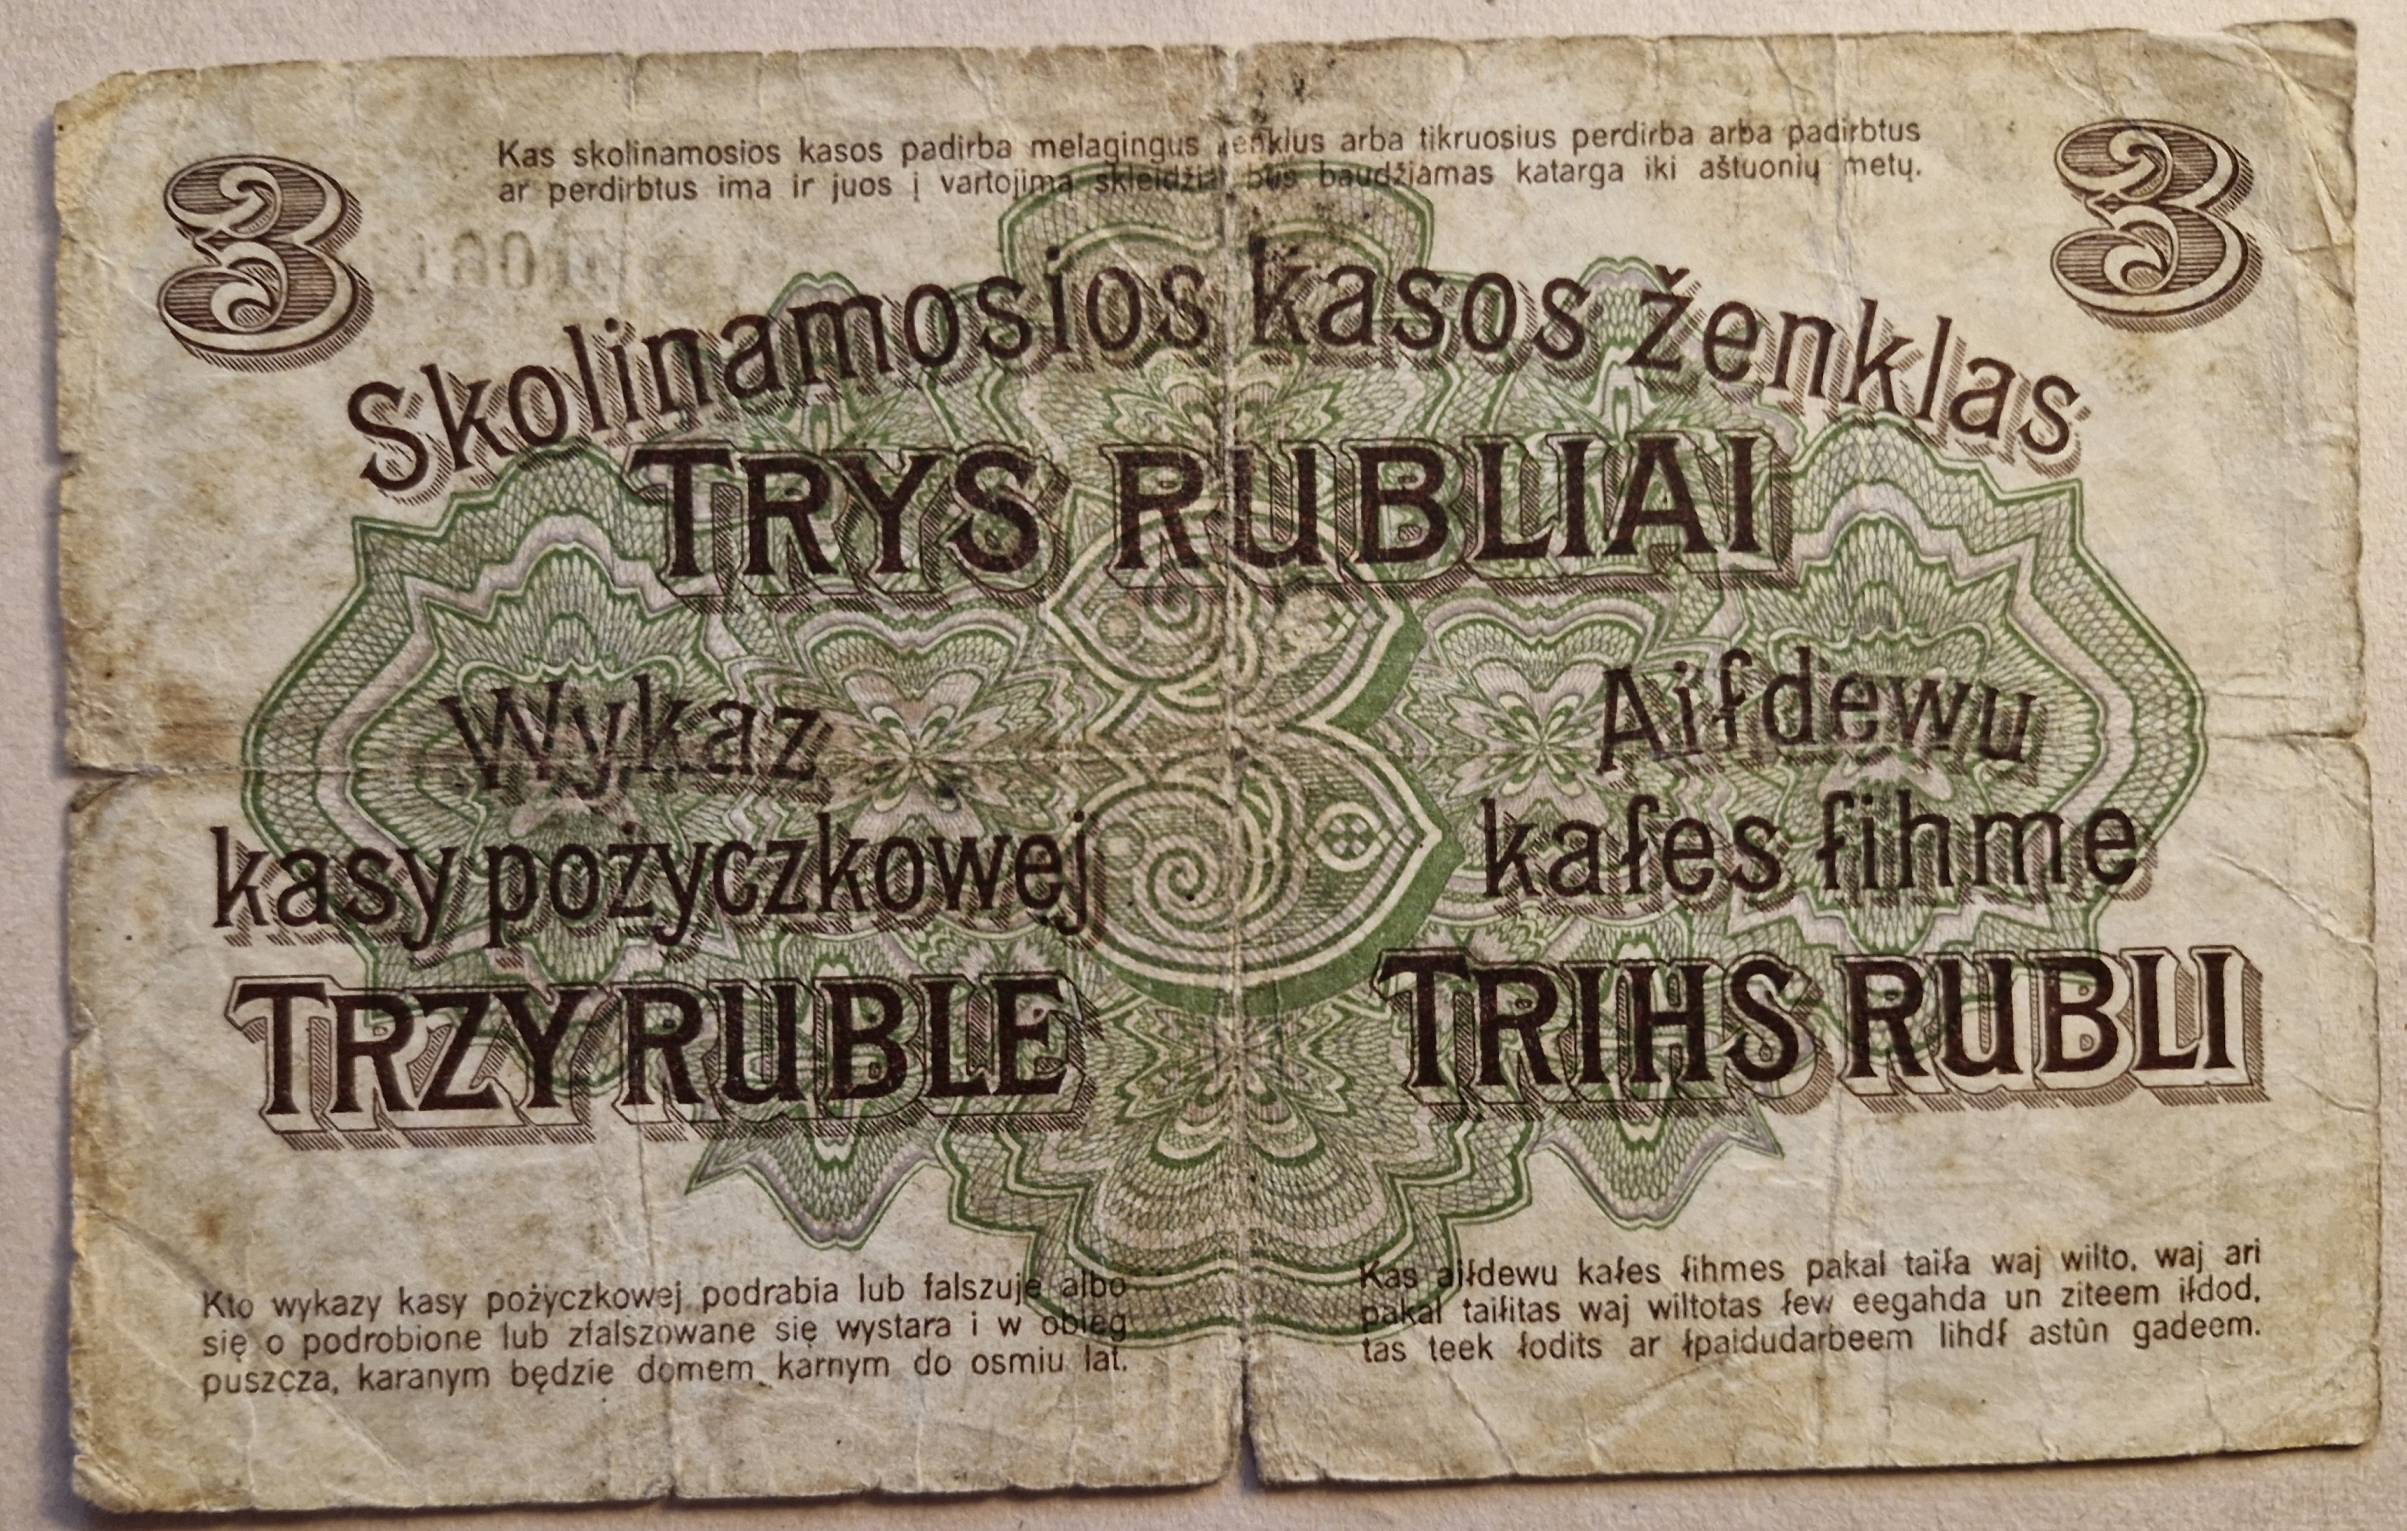 Kas skolinamosios kasos padirba melagingus ženklus arba tikruosius perdirba arba padirbtus
ar perdirbtus ima ir juos į vartojimą skleidžia, bus baudžiamas katarga iki aštuonių metų.
3
3
Skolinamosios kasos ženklas
TRYS RUBLIAI
3
Wykaz
kasy pożyczkowej
TRZY RUBLE
Aiſdewu
kaſes ſihme
TRIHS RUBLI
Kto wykazy kasy pożyczkowej podrabia lub falszuje albo
się o podrobione lub zfalszowane się wystara i w obieg
puszcza, karanym będzie domem karnym do osmiu lat.
Kas aiſdewu kaſes ſihmes pakal taiſa waj wilto, waj ari
pakal taiſitas waj wiltotas ſew eegahda un ziteem iſdod,
tas teek ſodits ar ſpaidudarbeem lihdſ astûn gadeem.